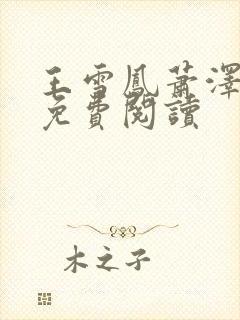 王雪鳳蕭澤
免費閱讀
木之子